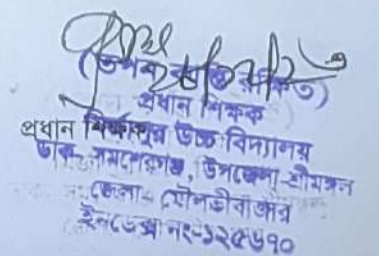 প্রধান শিক্ষক
প্রধান শিক্ষক
উচ্চ বিদ্যালয়
ডাক- সমশেরগঞ্জ, উপজেলা-শ্রীমঙ্গল
জেলা- মৌলভীবাজার
ইনডেক্স নং-১২৫৬৭০